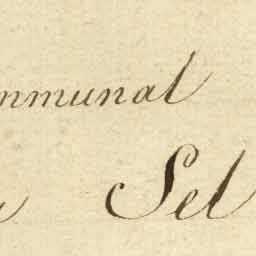 mmunal
Sel